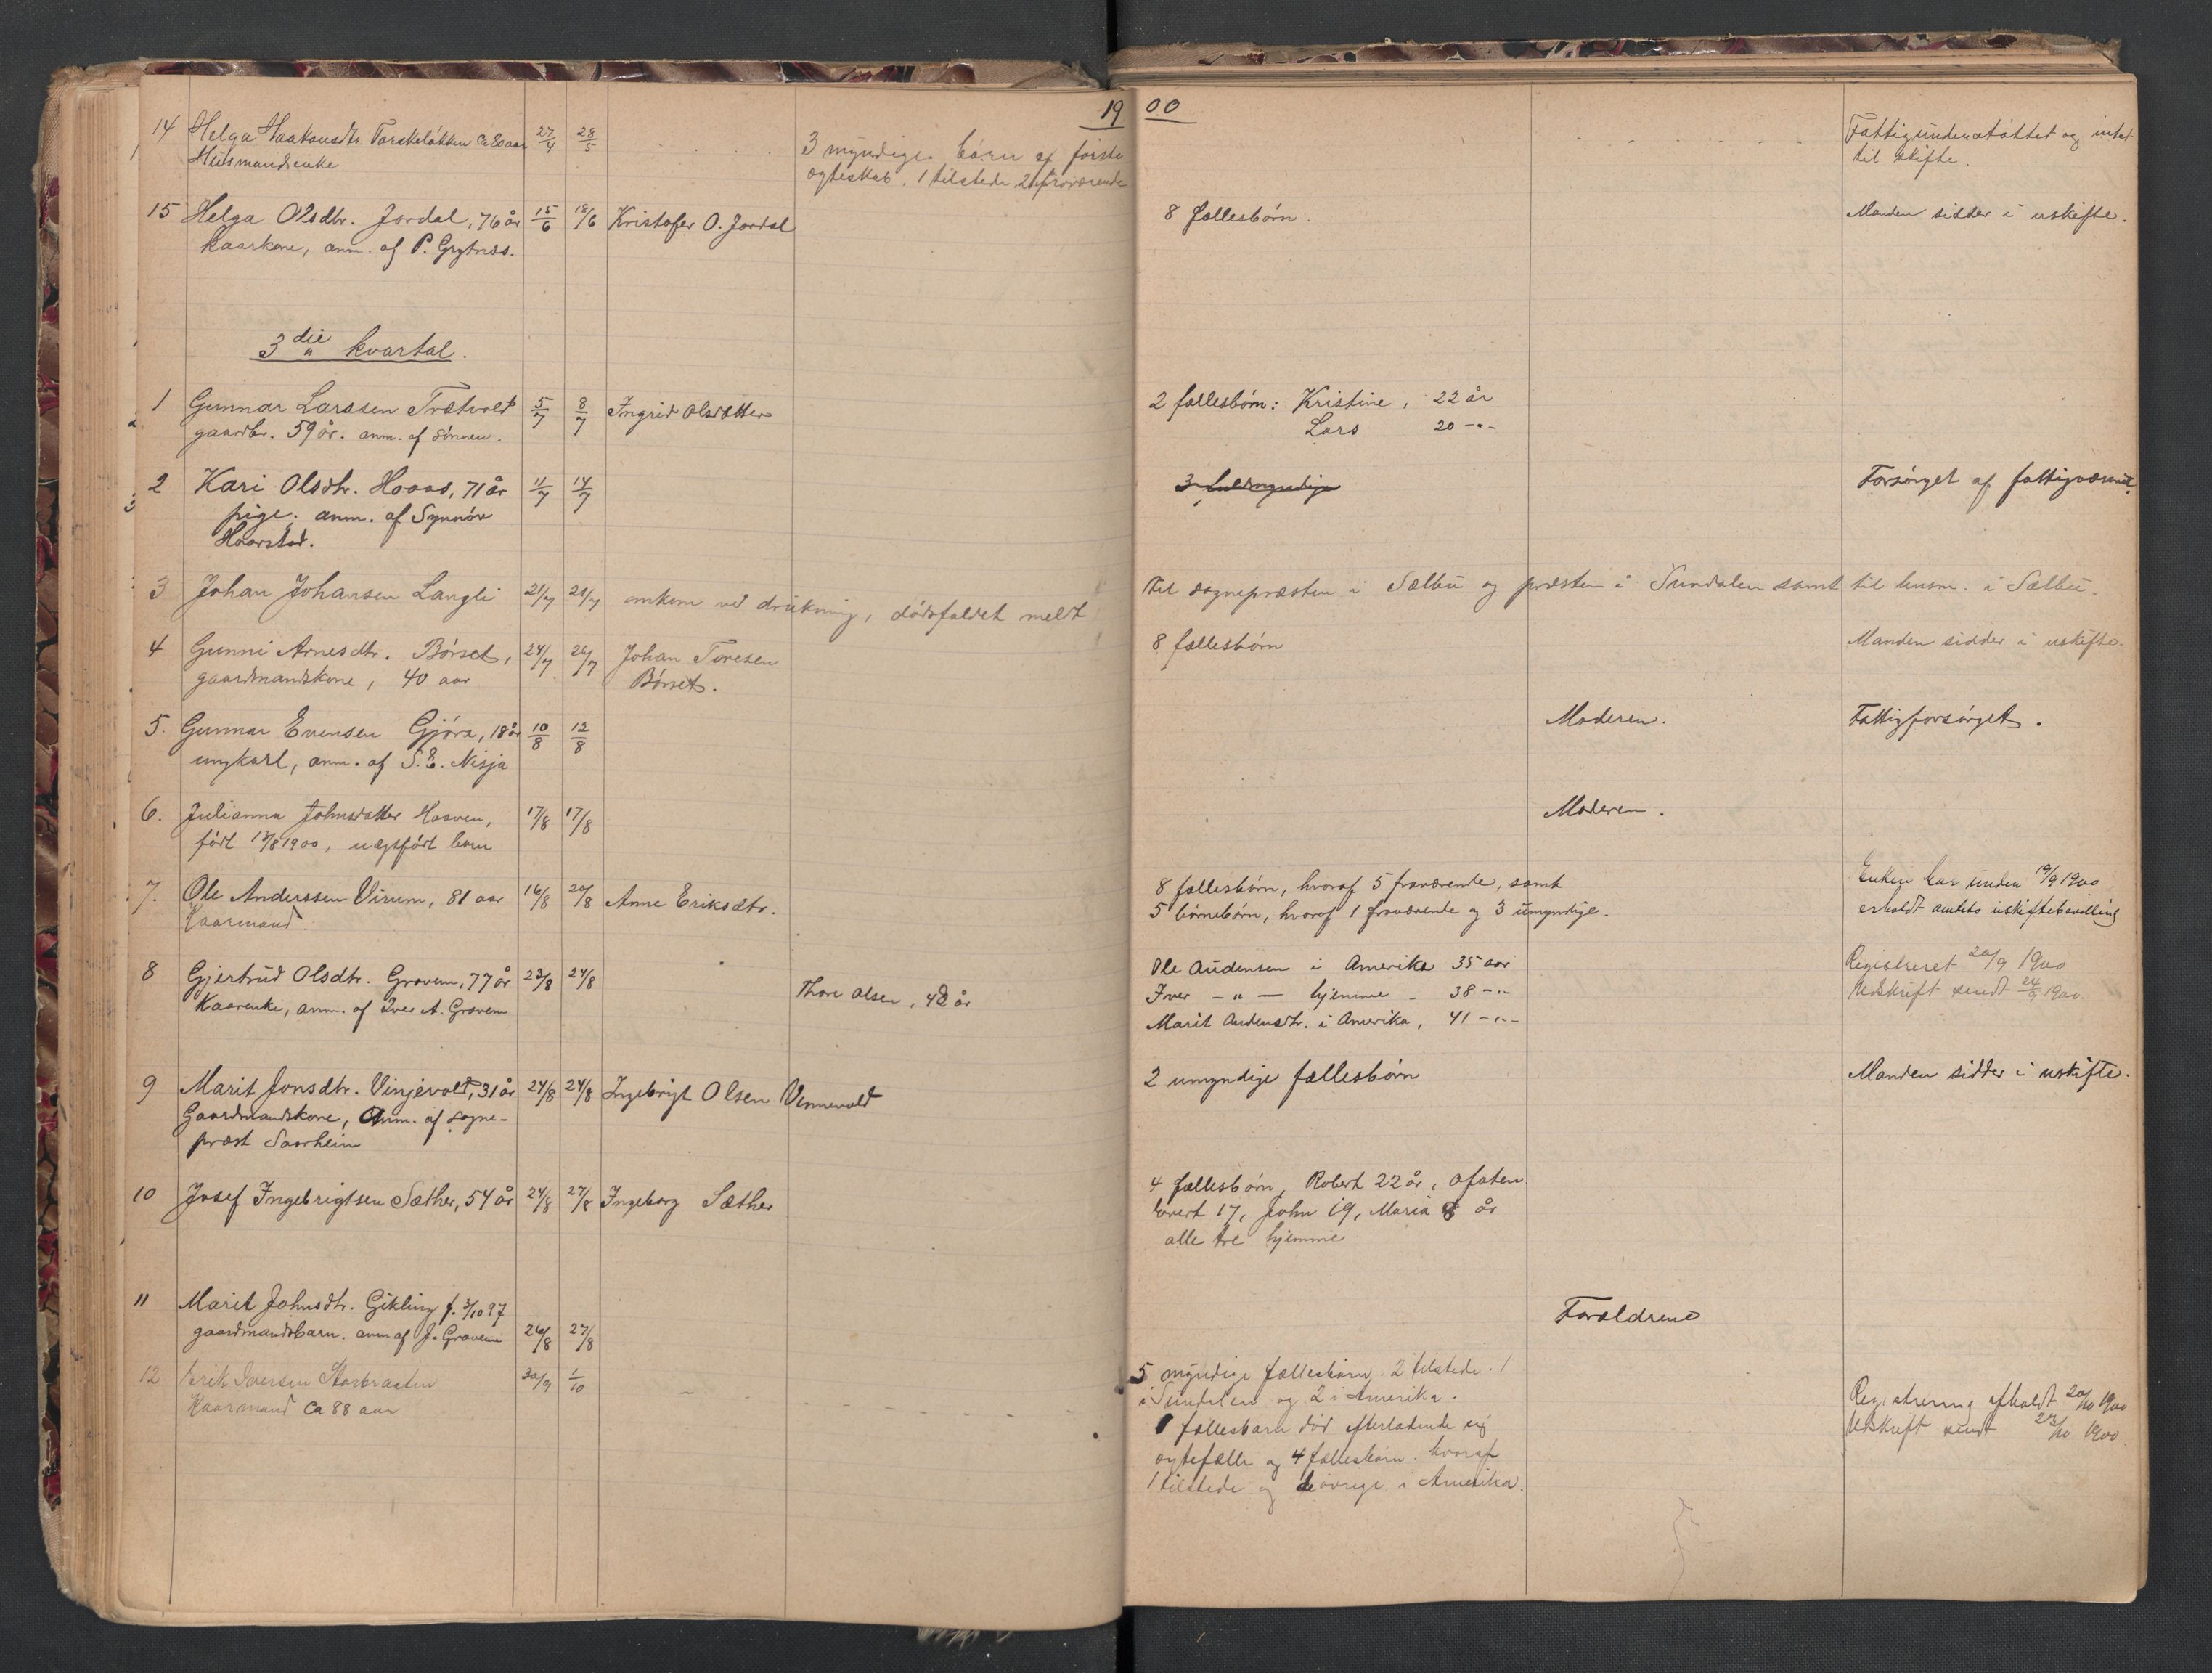 19 00
14 Helga Haakonsdtr. Torskeløkken ca 80 aar 27/4 28/5
Huusmandsenke
3 myndige børn af første
egteskab. 1 tilstede 2 fraværende
Fattigunderstøttet og intet
til skifte.
15 Helga Olsdtr. Jordal, 76 år 15/6 18/6 Kristofer O. Jordal 8 fællesbørn. Manden sidder i uskifte.
kaarkone, anm. af P. Grytnæs.
3die kvartal.
1 Gunnar Larssen Trætvold 5/7 8/7 Ingrid Olsdatter 2 fællesbørn: Kristine, 22 år
gaardbr. 59 år. anm. af sønnen. Lars 20 -"-
2 Kari Olsdtr. Hoaas, 71 år 11/7 14/7 3 fuldmyndige Forsørget af fattigvæsenet.
pige. anm. af Synnøv
Hoarstad.
3 Johan Johansen Langli 21/7 21/7 omkom ved drukning, dødsfaldet meldt til sognepræsten i Sælbu og præsten i Sundalen samt til lensm. i Sælbu.
4 Gunni Arnesdtr. Børset, 24/7 26/7 Johan Toresen 8 fællesbørn Manden sidder i uskifte.
gaardmandskone, 40 aar Børset.
5. Gunnar Evensen Gjøra, 18 år 10/8 12/8 Moderen. Fattigforsørget.
ungkarl, anm. af S. E. Nisja
6. Julianna Johnsdatter Hosven, 17/8 17/8 Moderen.
født 13/8 1900, uægtefødt barn
7. Ole Anderssen Virum, 81 aar 16/8 20/8 Anne Eriksdtr.
Kaarmand
8 fællesbørn, hvoraf 5 fraværende, samt
5 børnebørn, hvoraf 1 fraværende og 3 umyndige.
Enken har under 19/9 1900
erholdt amtets uskiftebevilling
8 Gjertrud Olsdtr. Grovem, 77 år 23/8 24/8 Thore Olsen, 48 år
Kaarenke, anm. af Iver A. Grovem
Ole Audensen i Amerika 35 aar
Iver -"- hjemme - 38 -"-
Marit Audensdtr. i Amerika, 41 -"-
Registreret 20/9 1900
Udskrift sendt 24/9 1900.
9 Marit Jonsdtr. Vinjevold, 31 år 24/8 24/8 Ingebrigt Olsen Vennevold 2 umyndige fællesbørn Manden sidder i uskifte.
Gaardmandskone, Anm. af sogne-
præst Saarheim
10 Josef Ingebrigtsen Sæther, 54 år 24/8 27/8 Ingeborg Sæther
4 fællesbørn, Robert 22 år,
17, John 19, Maria 8 år
alle tre hjemme
11 Marit Johnsdtr. Gikling f. 3/10 97
gaardmandsbarn. anm af J. Grovem 26/8 27/8 Forældrene
12 Erik Iversen Storbraaten 30/9 1/10
Kaarmand ca 88 aar
5 myndige fællesbørn. 2 tilstede. 1
i Sundalen og 2 i Amerika.
1 fællesbarn død efterladende sig
egtefælle og 4 fællesbørn. hvoraf
1 tilstede og de øvrige i Amerika.
Registrering afholdt 20/10 1900
Udskrift sendt 23/10 1900.